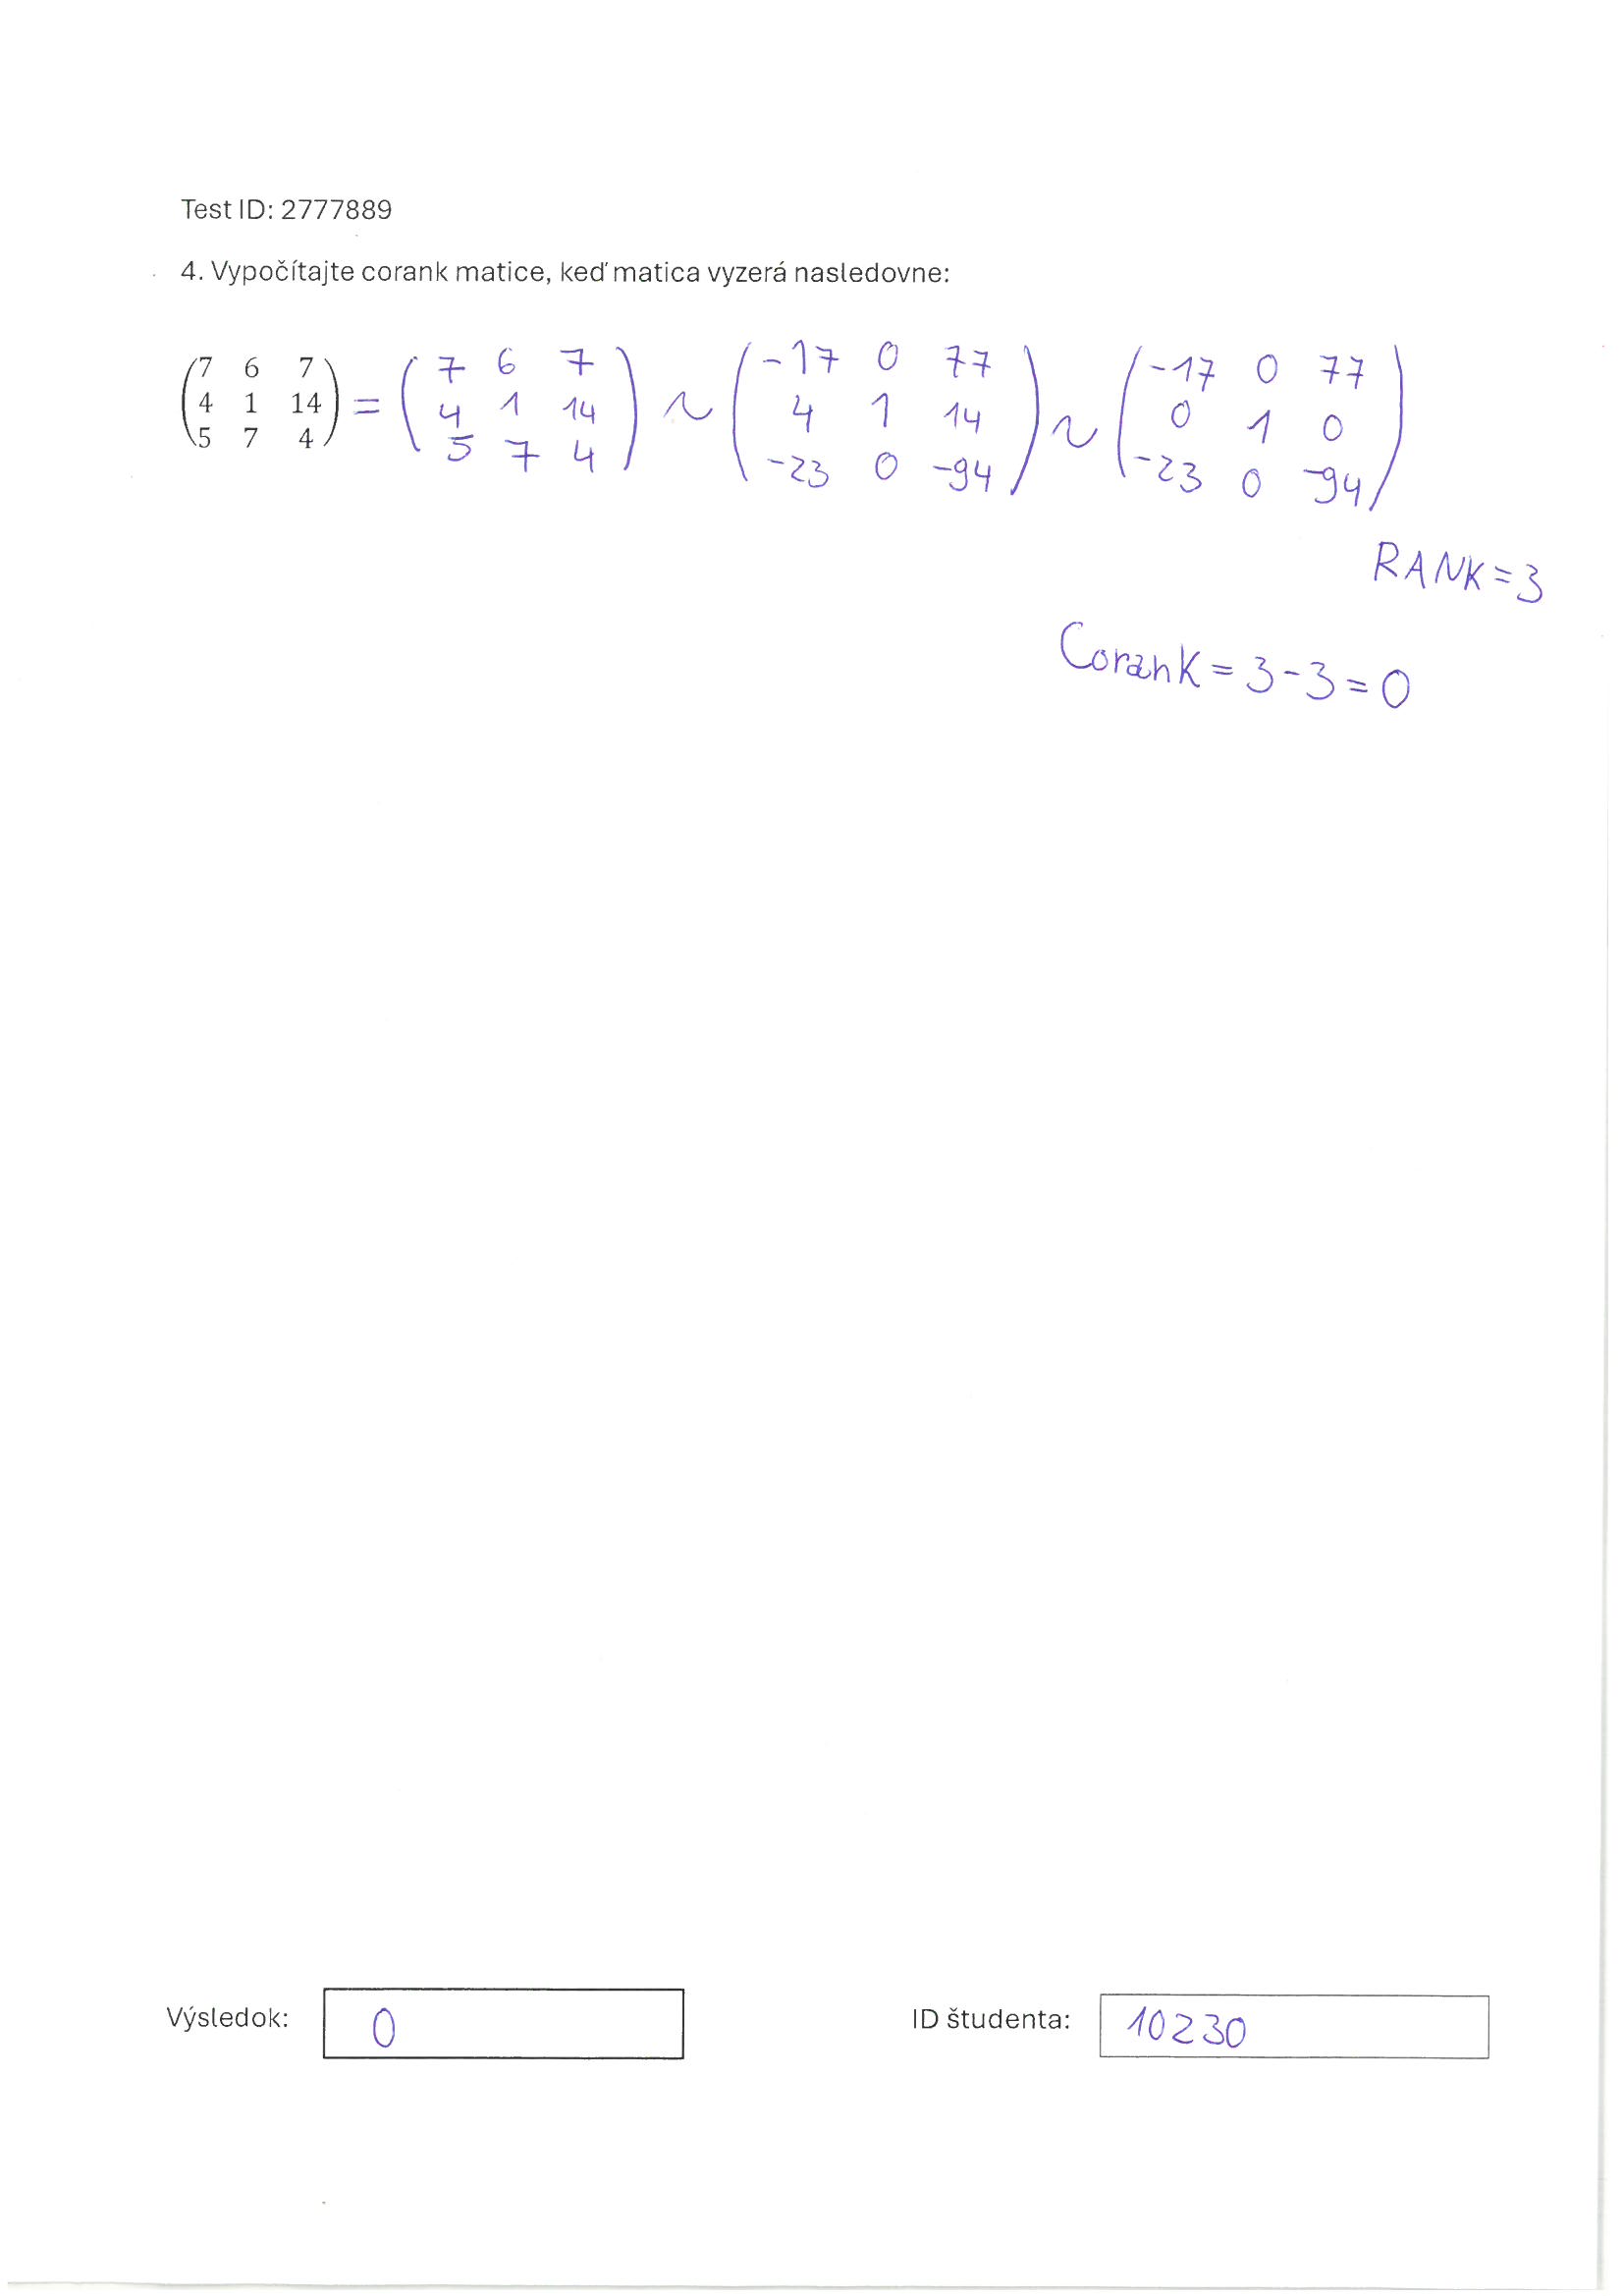 Test ID: 2777889
4. Vypočítajte corank matice, keď matica vyzerá nasledovne:
7 6 7 7 6 7 -17 0 77 -17 0 77
4 1 14 = 4 1 14 ~ 4 1 14 ~ 0 1 0
5 7 4 5 7 4 -23 0 -94 -23 0 -94
RANK=3
Corank = 3-3=0
Výsledok: 0 ID študenta: 10230